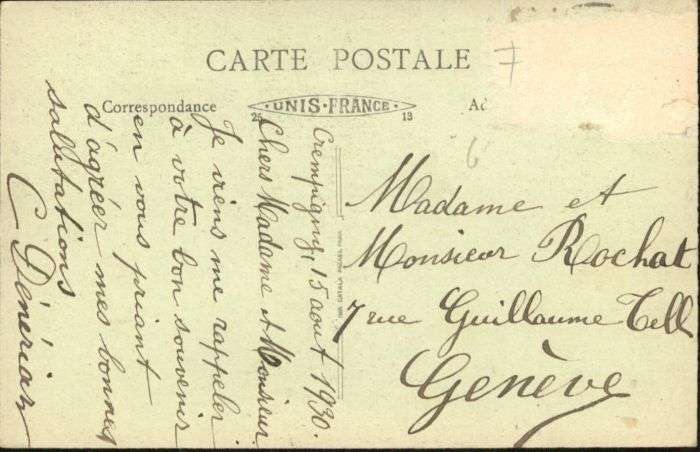 CARTE POSTALE
Correspondance
UNIS-FRANCE
25 13
Crempigny, 15 aout 1930.
Chers Madame et Monsieur
Je viens me rappeler
à votre bon souvenir
en vous priant
d'agréer mes bonnes
salutations
C Dénériaz
Madame et
Monsieur Rochat
7 rue Guillaume Tell
Genève